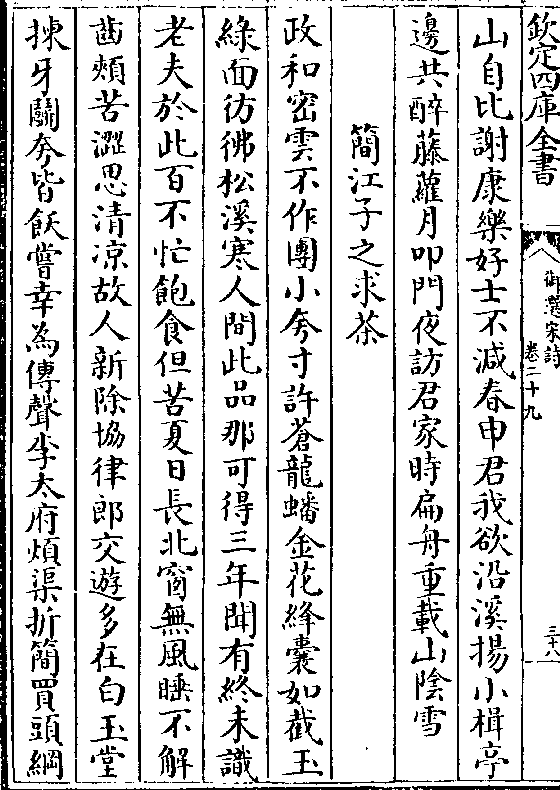 欽定四庫全書
御選宋詩
卷二十九
三十八
山自比謝康樂好士不減春申君我欲沿溪揚小楫亭
邊共醉藤蘿月叩門夜訪君家時扁舟重載山陰雪
簡江子之求茶
政和密雲不作團小夸寸許蒼龍蟠金花絳囊如截玉
綠面彷彿松溪寒人間此品那可得三年聞有終未識
老夫於此百不忙飽食但苦夏日長北窗無風睡不解
齒頰苦澀思清凉故人新除協律郎交遊多在白玉堂
揀牙鬭夸皆飫嘗幸為傳聲李太府煩渠折簡買頭綱